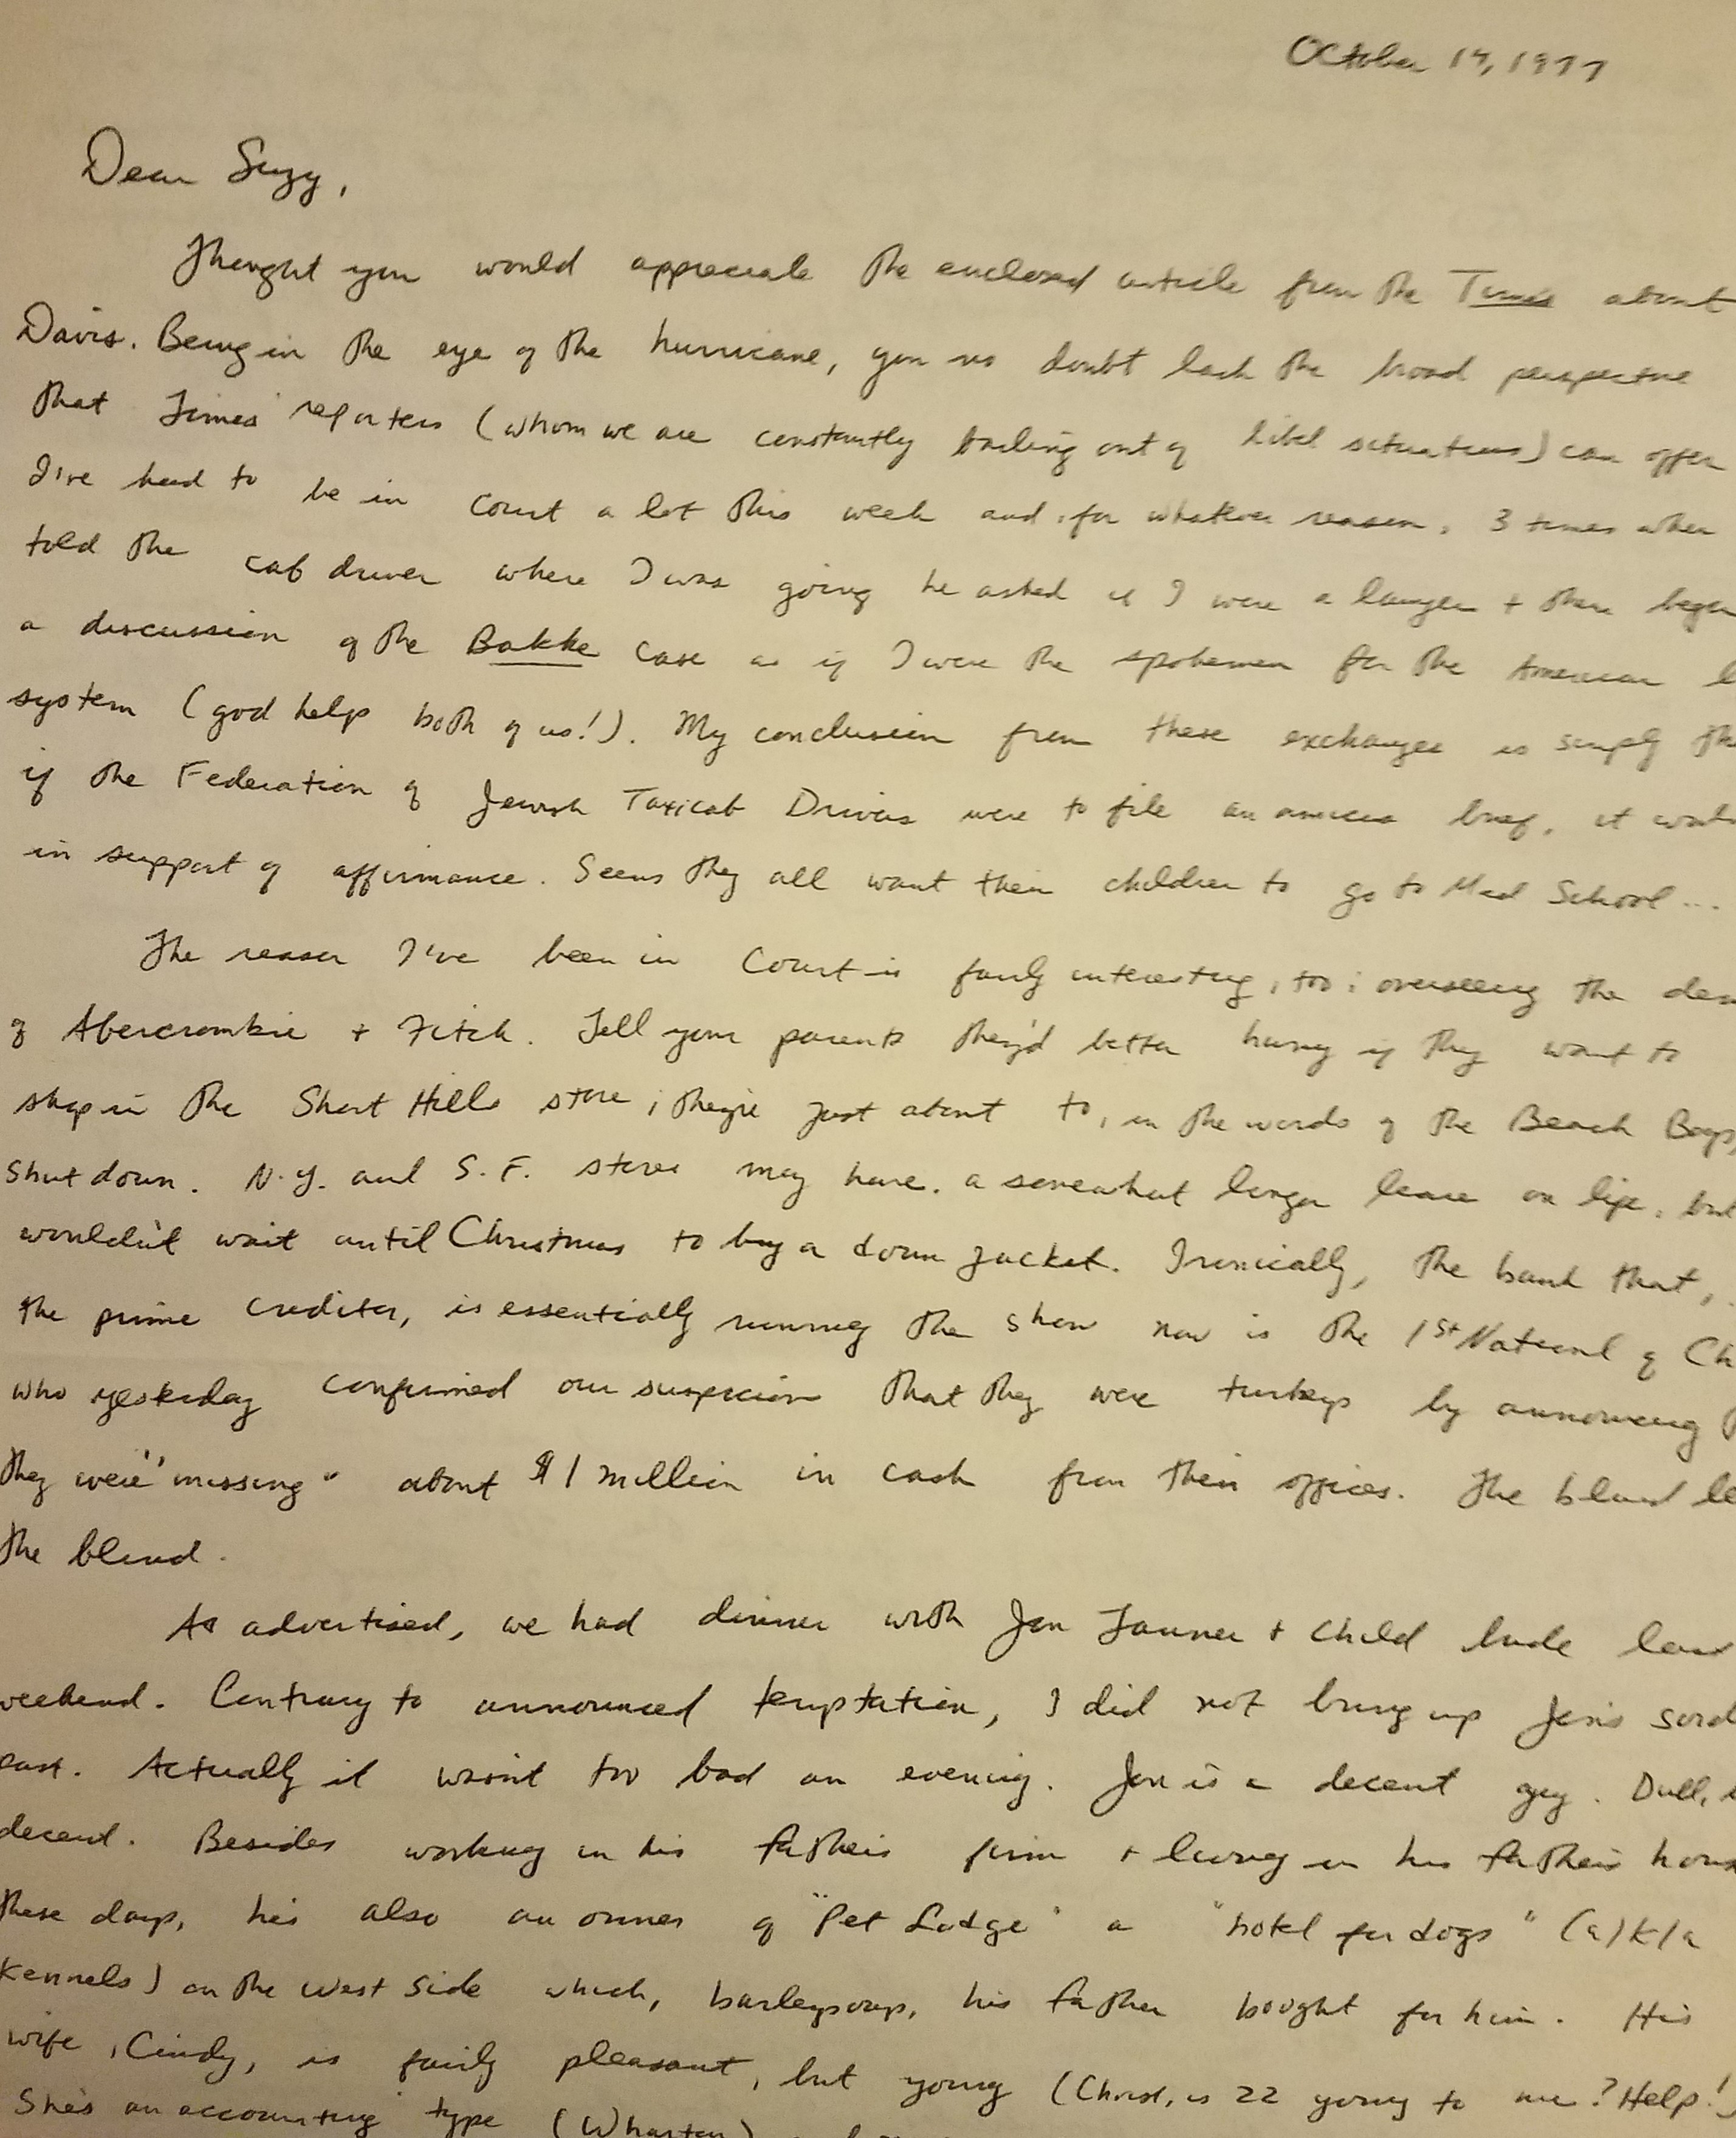 October 14, 1977
Dear Suzy,
Thought you would appreciate the enclosed article from the Times about
Davis. Being in the eye of the hurricane, you no doubt lack the broad perspective
that Times reporters (whom we are constantly bailing out of libel situations) can offer
I've had to be in court a lot this week and, for whatever reason, 3 times when
told the cab driver where I was going he asked if I were a lawyer + then began
a discussion of the Bakke case as if I were the spokesman for the American
system (god help both of us!). My conclusion from these exchanges is simply
if the Federation of Jewish Taxicab Drivers were to file an amicus brief, it would
in support of affirmance. Seems they all want their children to go to Med School ...
The reason I've been in Court is fairly interesting, too: overseeing the
of Abercrombie + Fitch. Tell your parents they'd better hurry if they want to
shop in the Short Hills store; they're just about to, in the words of the Beach Boys,
Shut down. N.Y. and S.F. stores may have a somewhat longer lease on life, but
wouldn't wait until Christmas to buy a down jacket. Ironically, the bank that,
the prime creditor, is essentially running the show now is the 1st National of
who yesterday confirmed our suspicion that they were turkeys by announcing
they were "missing" about $1 million in cash from their offices. The blind
the blind.
As advertised, we had dinner with Jon Tanner + child bride
weekend. Contrary to announced temptation, I did not bring up Jon's
past. Actually it wasn't too bad an evening. Jon is a decent guy. Dull,
decent. Besides working in his father's firm + living in his father's house
these days, he's also an owner of "Pet Lodge" a "hotel for dogs" (a/k/a
Kennels) on the West Side which, barleysoup, his father bought for him. His
wife, Cindy, is fairly pleasant, but young (Christ, is 22 young to me? Help!)
She's an accounting type (Wharton)